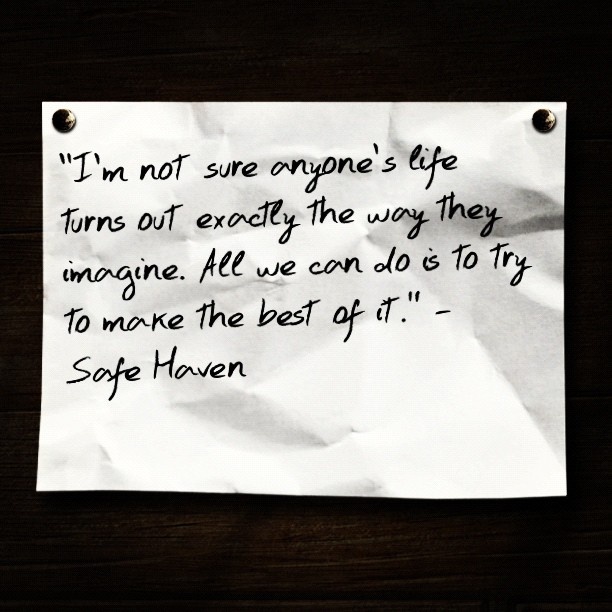 "I'm not sure anyone's life
turns out exactly the way they
imagine. All we can do is to try
to make the best of it." -
Safe Haven